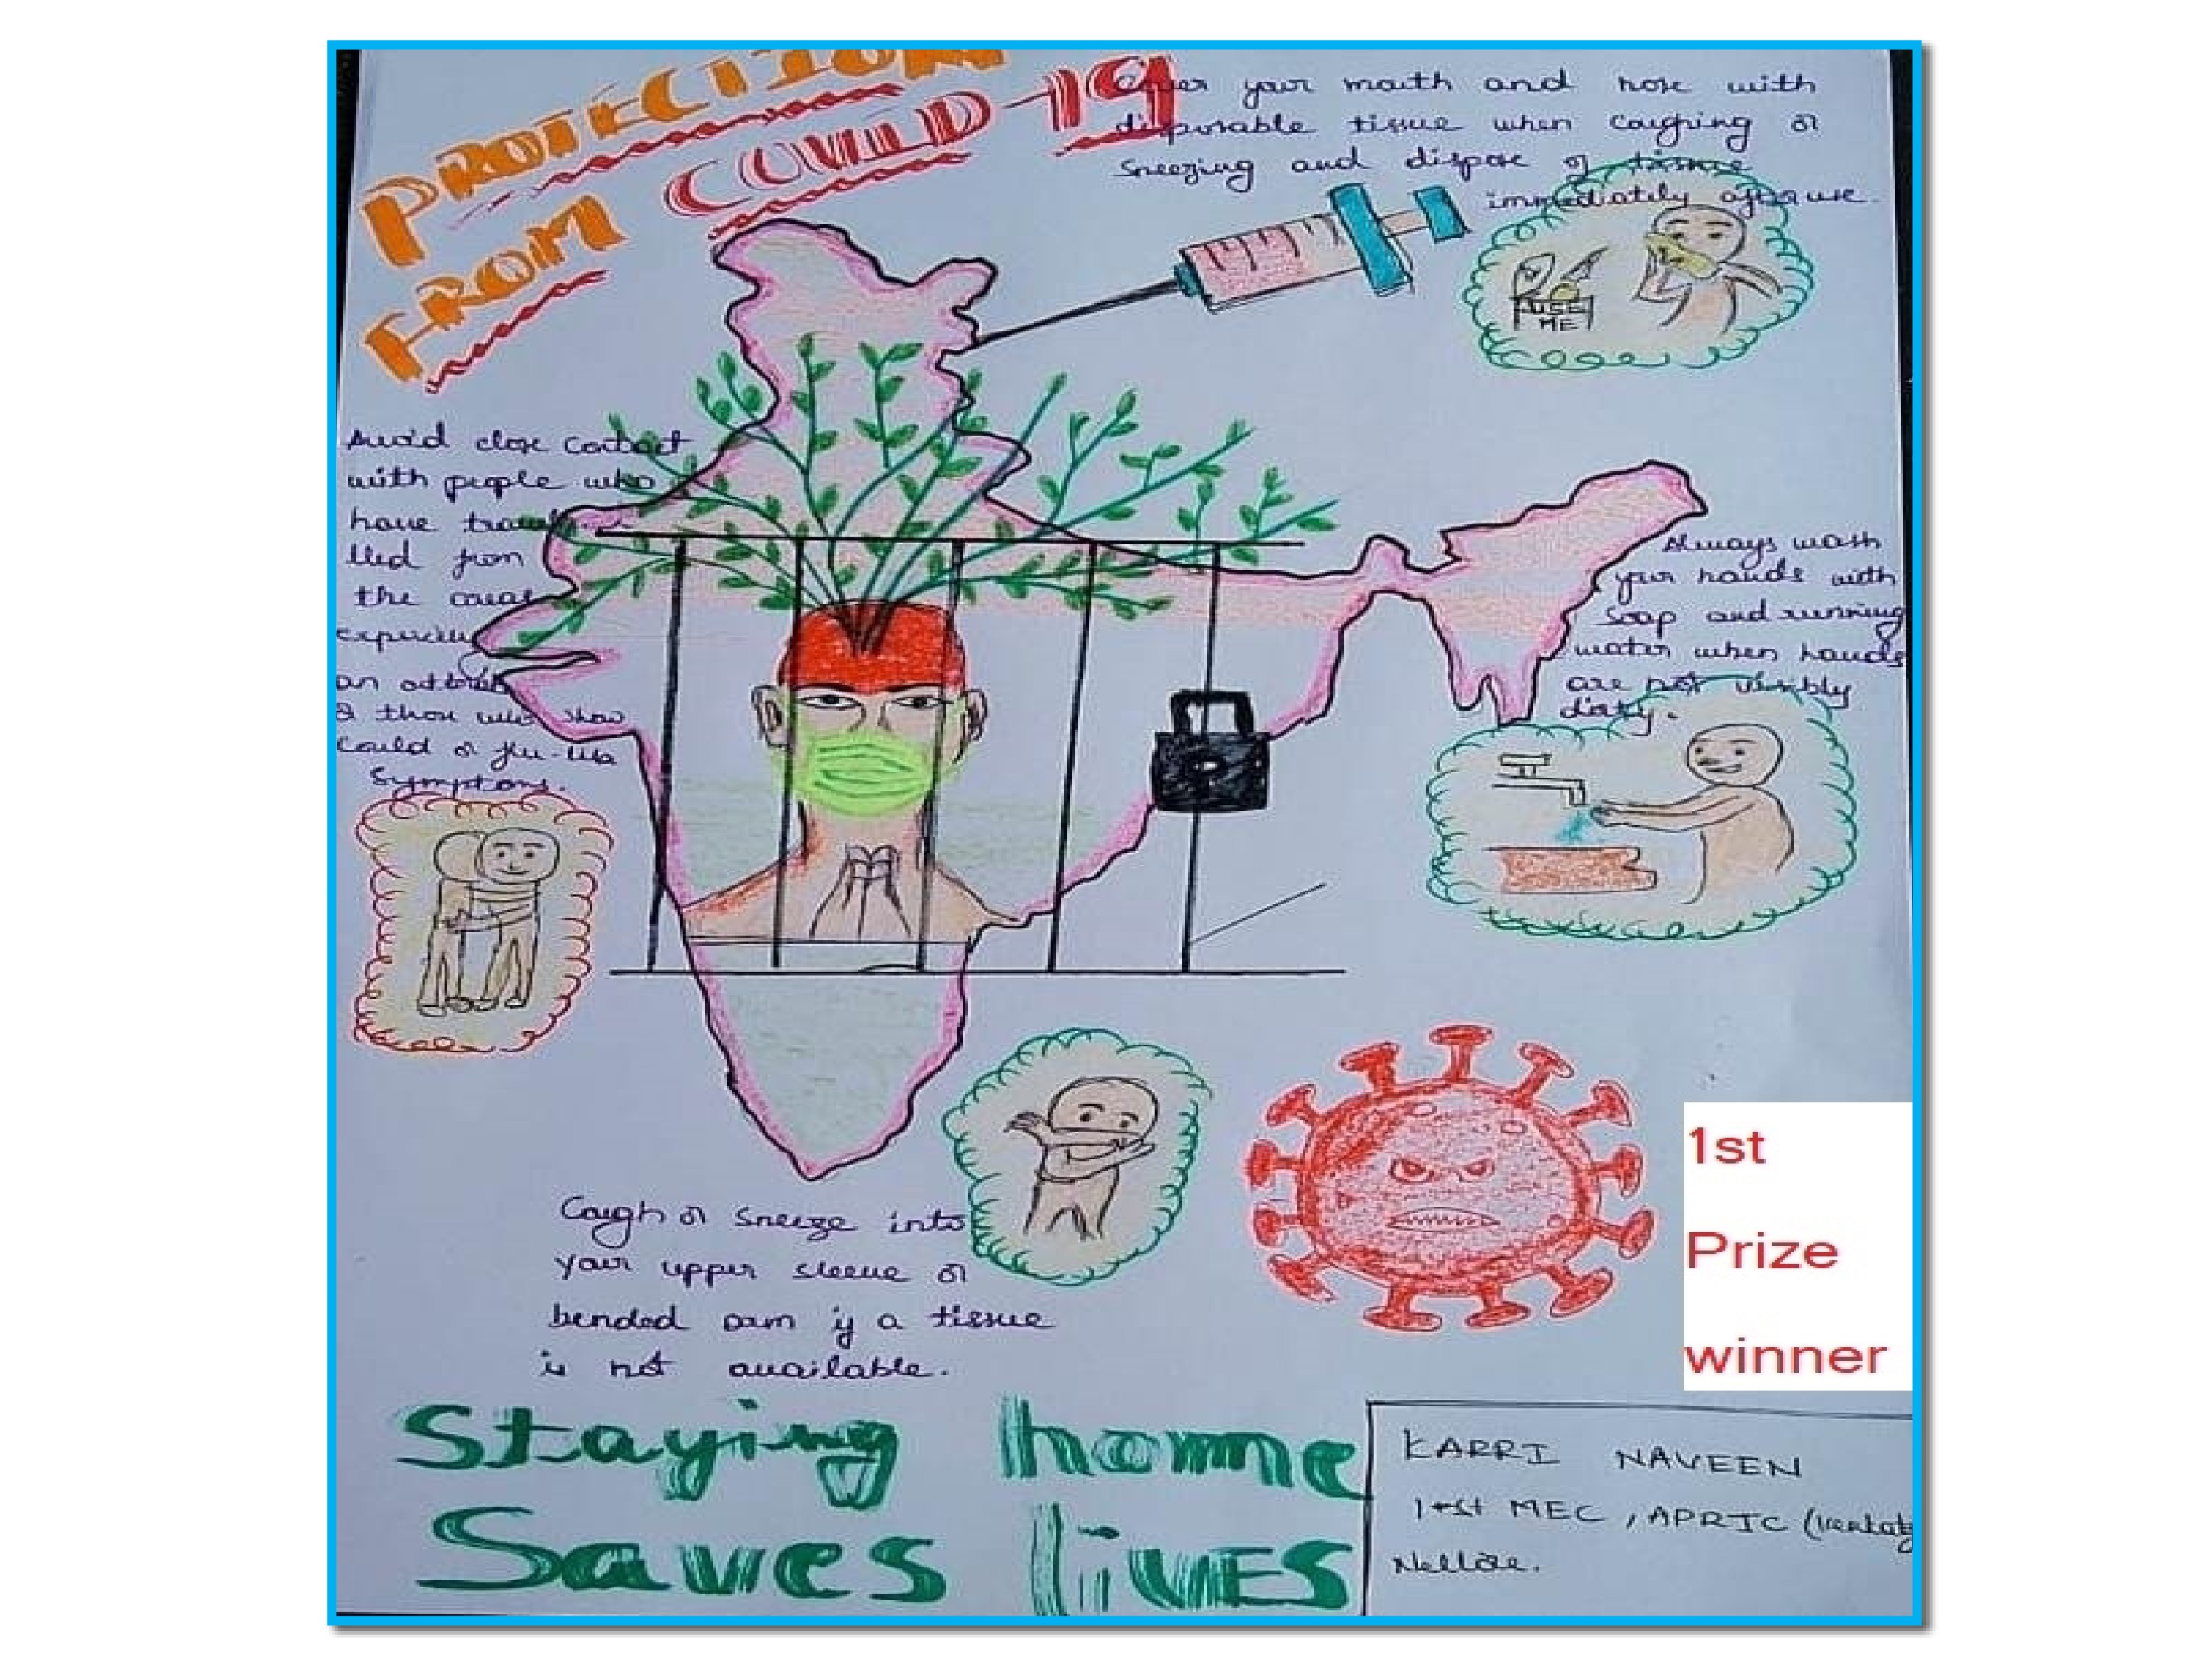 PROTECTION
FROM COVID-19
Cover your mouth and nose with
disposable tissue when coughing or
sneezing and dispose of tissue
immediately after use.
USE
ME
Avoid close contact
with people who
have travel
lled from
the areas
an
& those who show
could or flu-like
symptoms.
Always wash
your hands with
soap and running
water when hands
are not visibly
dirty.
Cough or sneeze into
your upper sleeve or
bended arm if a tissue
is not available.
1st
Prize
winner
Staying home
Saves liVES
KARRI NAVEEN
1st MEC, APRJC
Nellore.